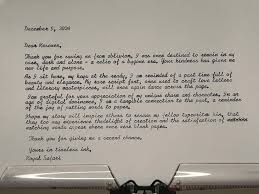 December 5, 2024
Dear Rescuer,
Thank you for saving me from oblivion. I was once destined to remain in my
case, dark and alone - a relic of a bygone era. Your kindness has given me
new life and purpose.
As I sit here, my keys at the ready, I am reminded of a past time full of
beauty and elegance. My rare script font, once used to craft love letters
and literary masterpieces, will once again dance across the page.
I am grateful for your appreciation of my unique charm and character. In an
age of digital dominance, I am a tangible connection to the past, a reminder
of the joy of putting words to paper.
I hope my story will inspire others to rescue my fellow typewriter kin, that
they too may experience the delight of creation and the satisfaction of
watching words appear where once were blank pages.
Thank you for giving me a second chance.
Yours in timeless ink,
Royal Safari